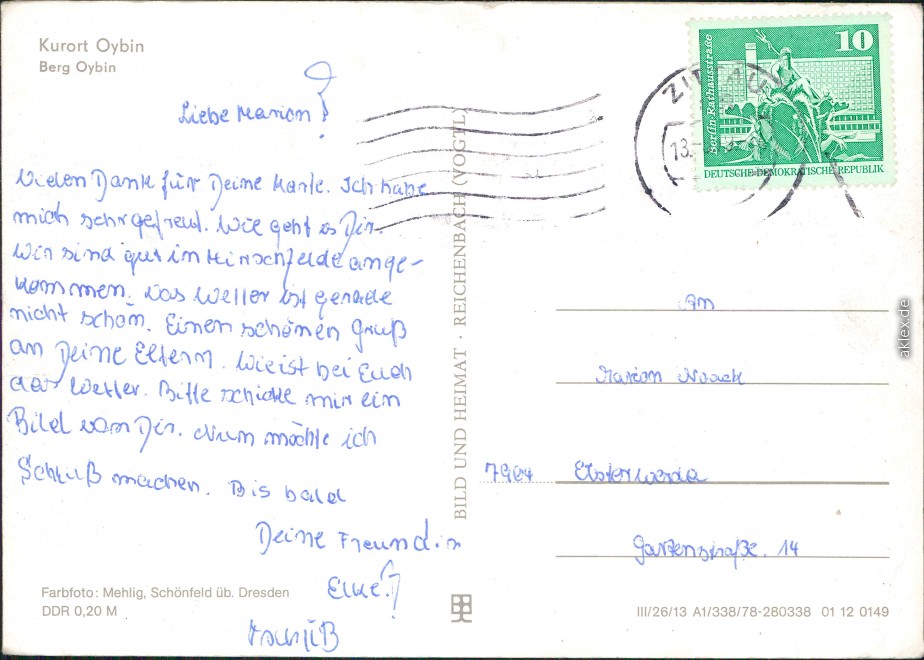 Kurort Oybin
Berg Oybin
Liebe Marion!
Vielen Dank für Deine Karte. Ich habe
mich sehr gefreut. Wie geht es Dir.
Wir sind gut in Hirschfelde ange-
kommen. Das Wetter ist gerade
nicht schön. Einen schönen Gruß
an Deine Eltern. Wie ist bei Euch
das Wetter. Bitte schicke mir ein
Bild von Dir. Nun möchte ich
Schluß machen. Bis bald
Deine Freundin
Elke!
Tschüß
Farbfoto: Mehlig, Schönfeld üb. Dresden
DDR 0,20 M
BILD UND HEIMAT · REICHENBACH (VOGTL
10
Berlin, Rathausstraße
DEUTSCHE DEMOKRATISCHE REPUBLIK
ZITTAU
An
Marion Noack
7904 Elsterwerda
Gartenstraße. 14
III/26/13 A1/338/78-280338 01 12 0149
aklex.de